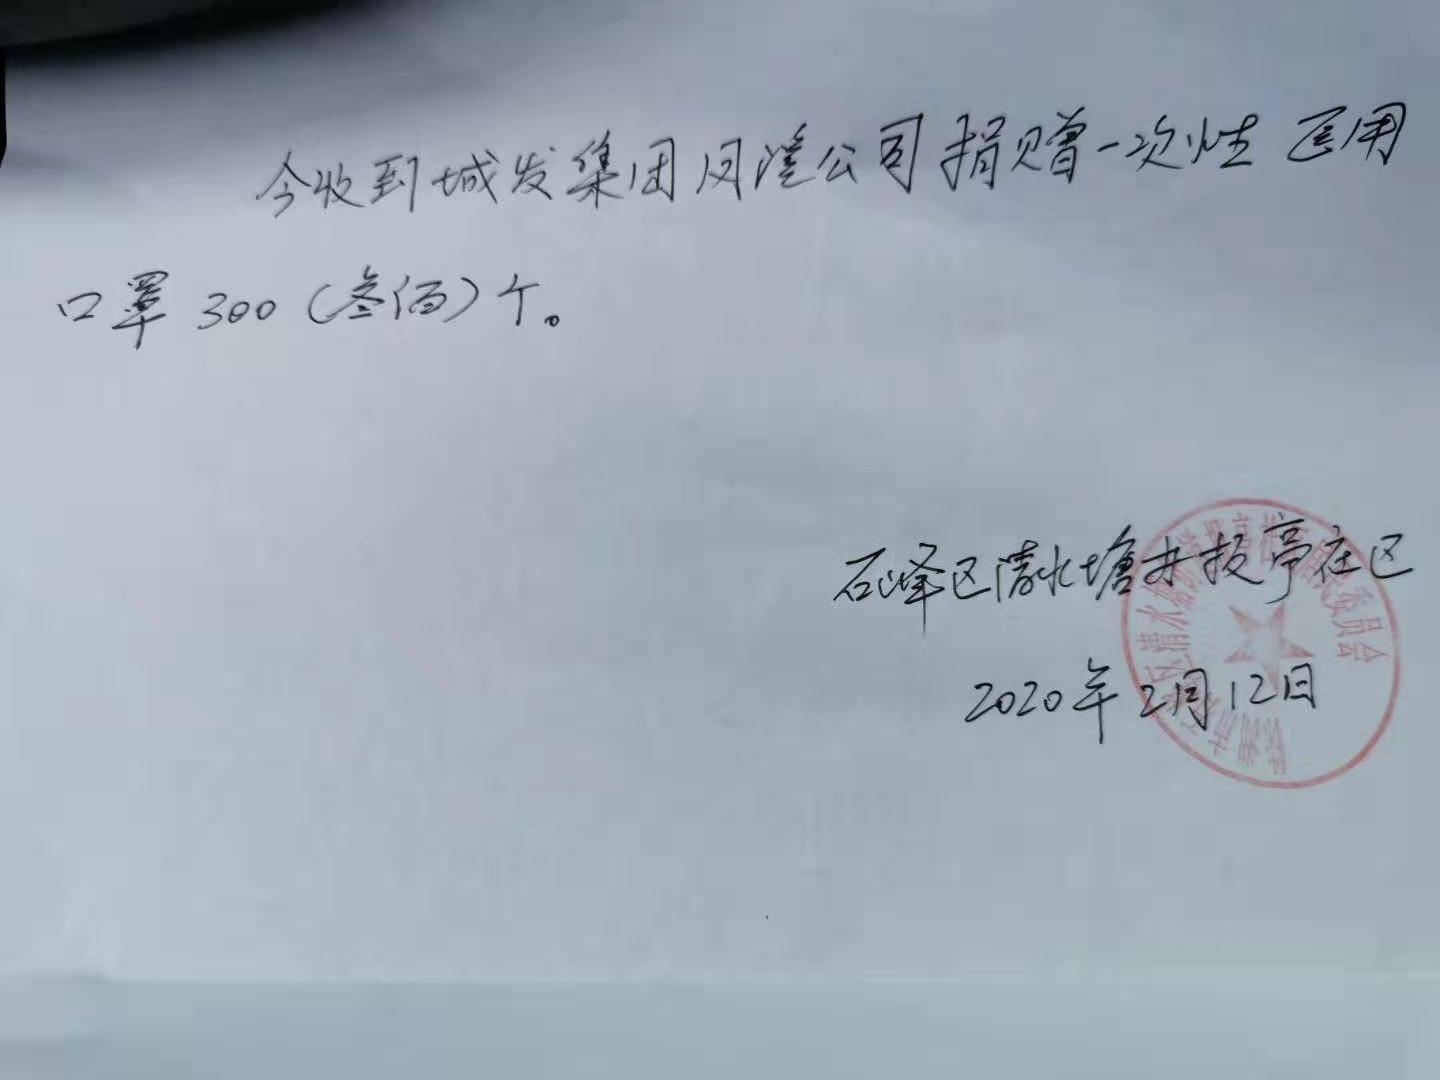 今收到城发集团月滢公司捐赠一次性医用
口罩 300（叁佰）个。
石峰区清水塘井投亭社区
2020年2月12日